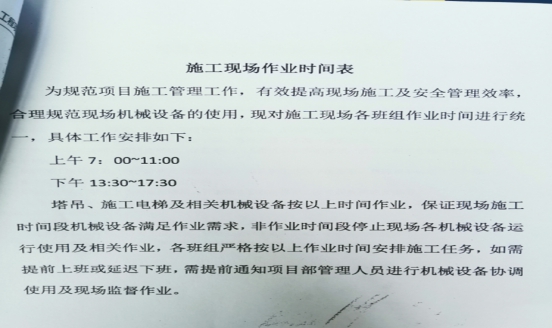 施工现场作业时间表
为规范项目施工管理工作，有效提高现场施工及安全管理效率，
合理规范现场机械设备的使用，现对施工现场各班组作业时间进行统
一，具体工作安排如下：
上午 7：00~11:00
下午 13:30~17:30
塔吊、施工电梯及相关机械设备按以上时间作业，保证现场施工
时间段机械设备满足作业需求，非作业时间段停止现场各机械设备运
行使用及相关作业，各班组严格按以上作业时间安排施工任务，如需
提前上班或延迟下班，需提前通知项目部管理人员进行机械设备协调
使用及现场监督作业。